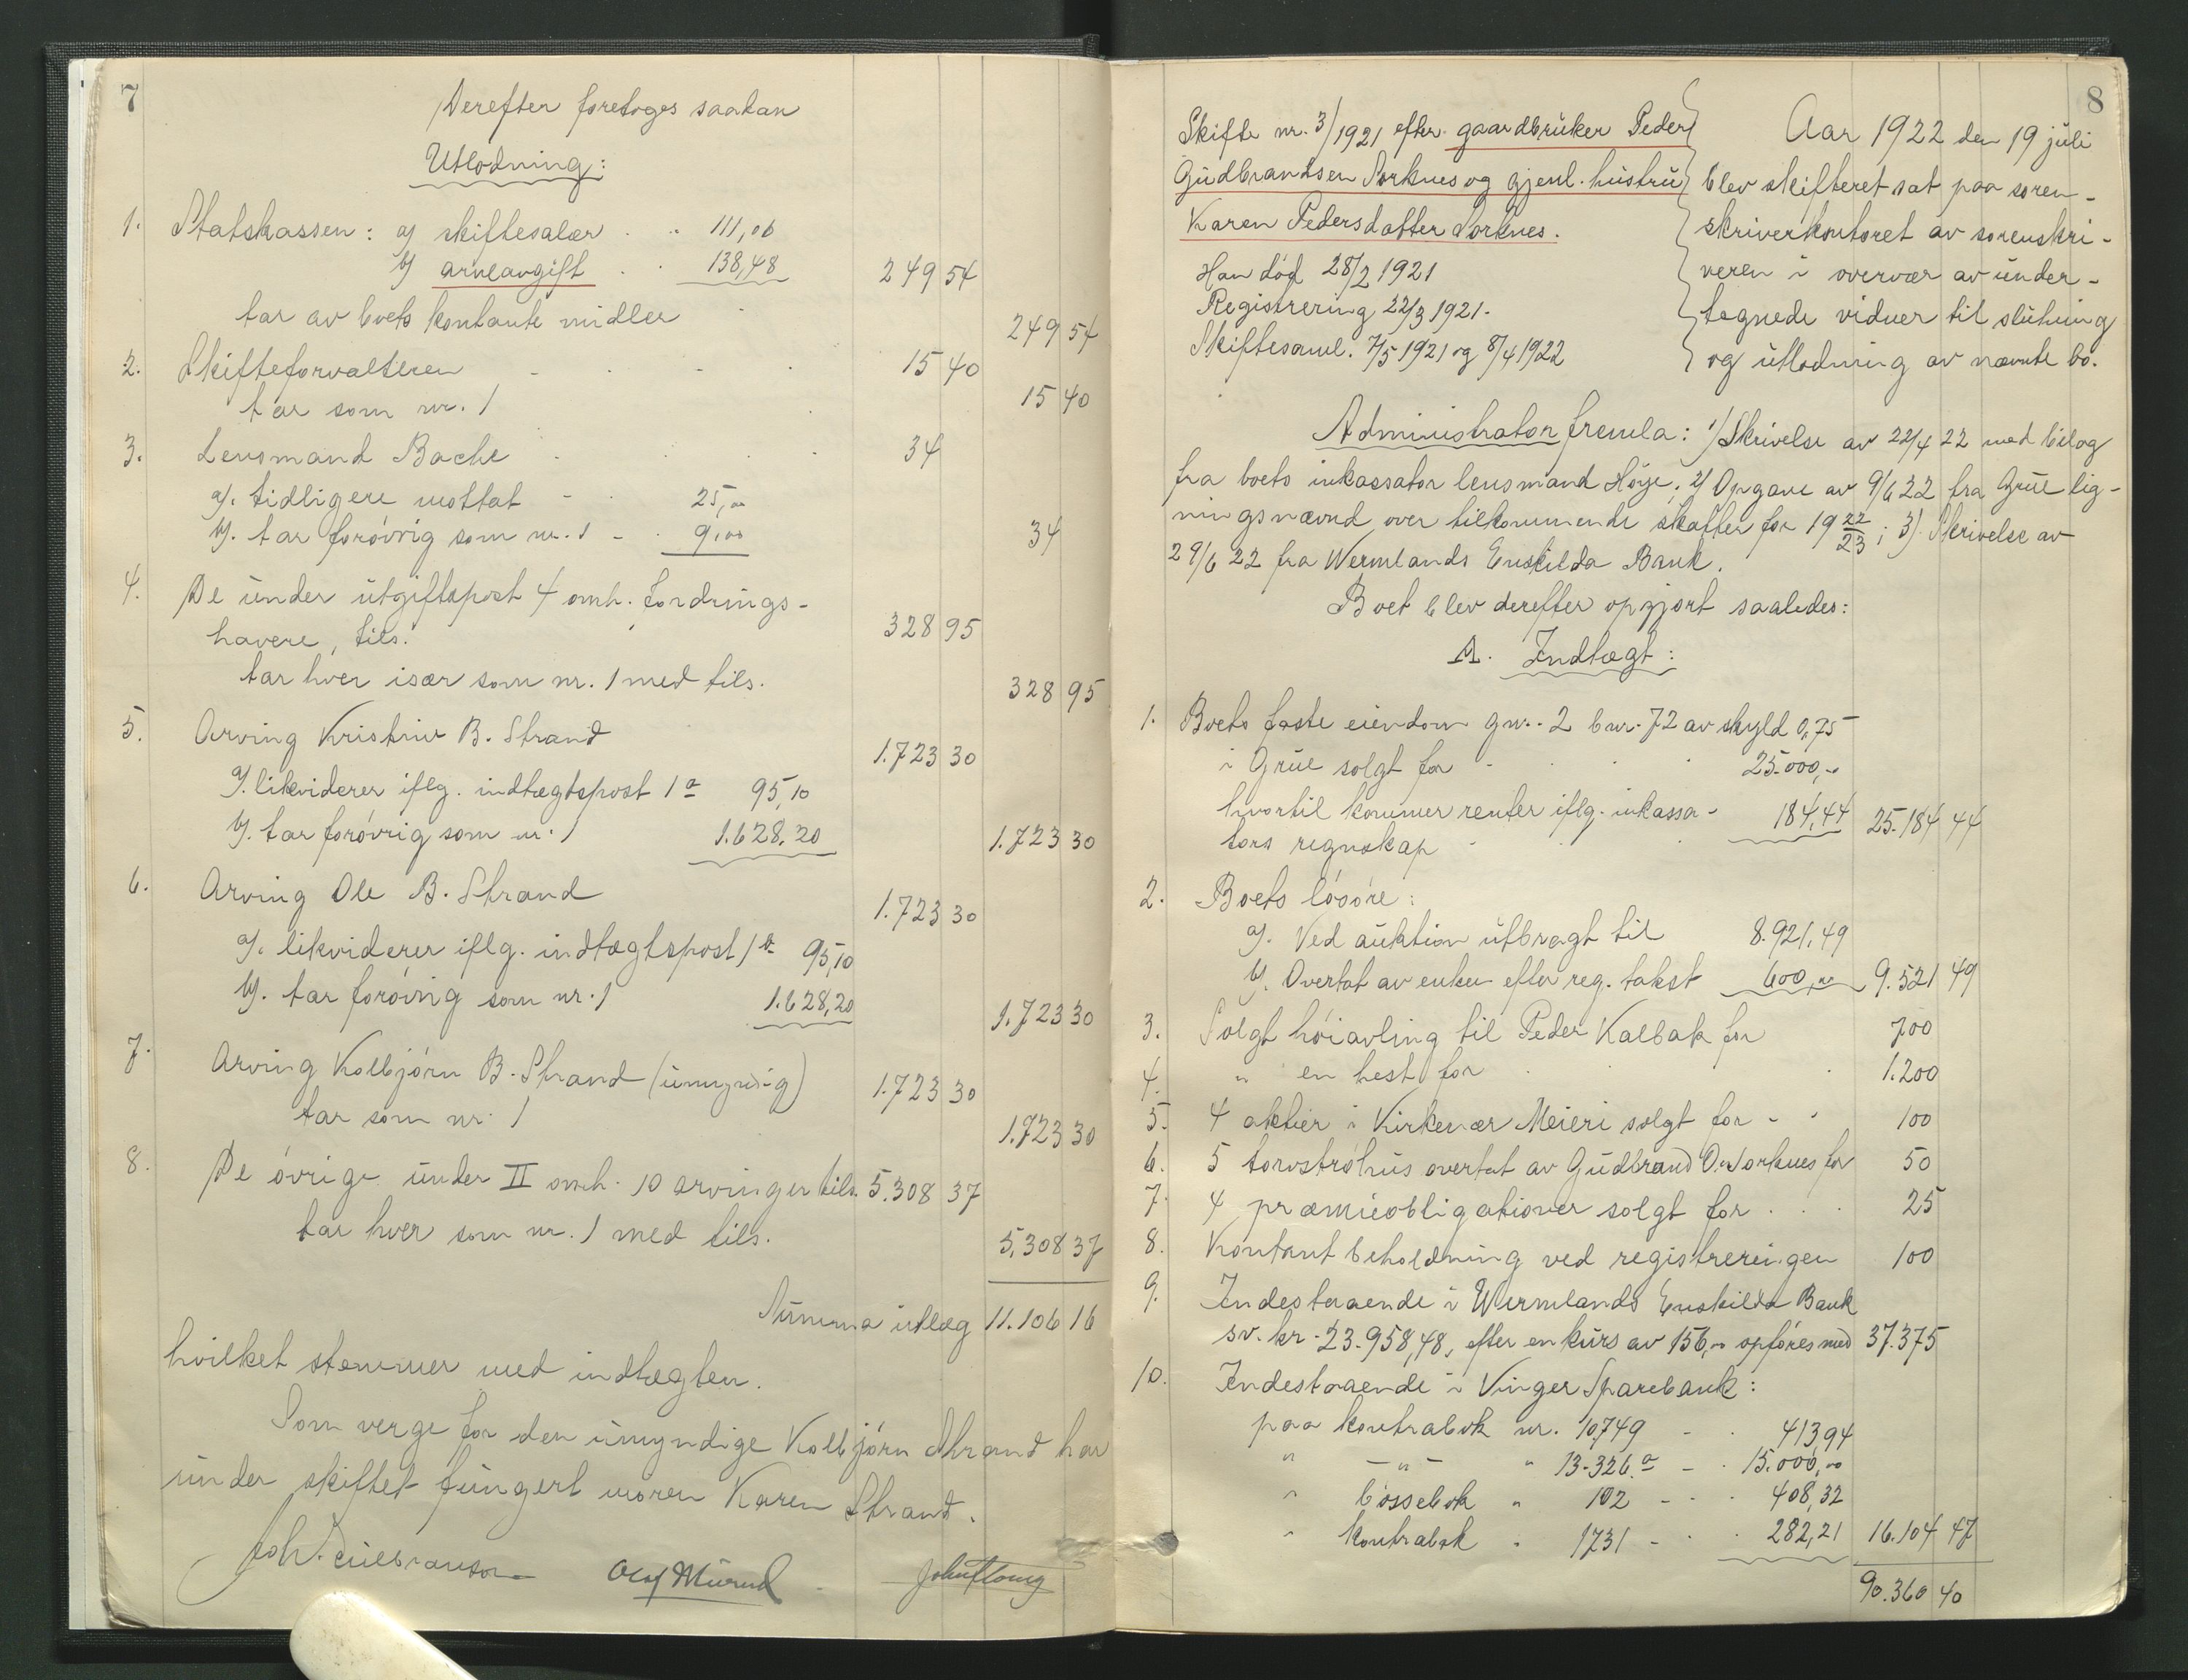 7
Derefter foretoges saadan
Utlodning:
1. Statskassen: a) skiftesalær . . 111,06
b) arveavgift . . 138,48 249 54
tar av boets kontante midler 249 54
2. Skifteforvalteren 15 40
tar som nr. 1 15 40
3. Lensmand Bache 34
a). tidligere mottat - 25,00
b). tar forøvrig som nr. 1 - . 9,00 34
4. De under utgiftspost 4 omh. fordrings-
havere, tils. 328 95
tar hver især som nr. 1 med tils. 328 95
5. Arving Kristine B. Strand 1.723 30
a). likviderer iflg. indtægtspost 1 a 95,10
b). tar forøvrig som nr. 1 1.628,20 1.723 30
6. Arving Ole B. Strand 1.723 30
a). likviderer iflg. indtægtspost 1 a 95,10
b). tar forøvrig som nr. 1 1.628,20 1.723 30
7. Arving Kolbjørn B. Strand (umyndig) 1.723 30
tar som nr. 1 1.723 30
8. De øvrige under II omh. 10 arvinger tils. 5.308 37
tar hver som nr. 1 med tils. 5.308 37
Summa utlæg 11.106 16
hvilket stemmer med indtægten.
Som verge for den umyndige Kolbjørn Strand har
under skiftet fungert moren Karen Strand.
Olaf Murud
8
Skifte nr. 3/1921 efter gaardbruker Peder
Gudbrandsen Sorknes og gjenl. hustru
Karen Pedersdatter Sorknes.
Han død 28/2 1921
Registrering 22/3 1921.
Skiftesaml. 7/5 1921 og 8/4 1922
Aar 1922 den 19 juli
blev skifteret sat paa soren-
skriverkontoret av sorenskri-
veren i overvær av under-
tegnede vidner til slutning
og utlodning av nævnte bo.
Administrator fremla: 1) Skrivelse av 22/4 22 med bilag
fra boets inkassator lensmand Høye; 2) Opgave av 9/6 22 fra Grue lig-
ningsnævnd over tilkommende skatter for 19 22/23; 3) Skrivelse av
29/6 22 fra Wermlands Enskilda Bank.
Boet blev derefter opgjort saaledes:
A. Indtægt:
1. Boets faste eiendom gnr. 2 bnr. 72 av skyld 0,75
i Grue solgt for - 25.000,00
hvortil kommer renter iflg. inkassa-
tors regnskap 184,44 25.184 44
2. Boets løsøre:
a). Ved auktion utbragt til 8.921,49
b). Overtat av enken efter reg. takst 600,00 9.521 49
3. Solgt høiavling til Peder Kalbak for 700
4. " en hest for 1.200
5. 4 aktier i Kirkenær Meieri solgt for - - 100
6. 5 torvstrøhus overtat av Gudbrand O. Sorknes for 50
7. 4 præmieobligationer solgt for . . . 25
8. Kontant beholdning ved registreringen 100
9. Indestaaende i Wermlands Enskilda Bank
sv. kr. 23.958,48, efter en kurs av 156,00 opføres med 37.375
10. Indestaaende i Vinger Sparebank:
paa kontrabok nr. 10749 - . 413,94
" -"- " 13.326 a - . 15.000,00
" bøssebok " 102 - . . 408,32
" kontrabok " 1731 - . . 282,21 16.104 47
90.360 40